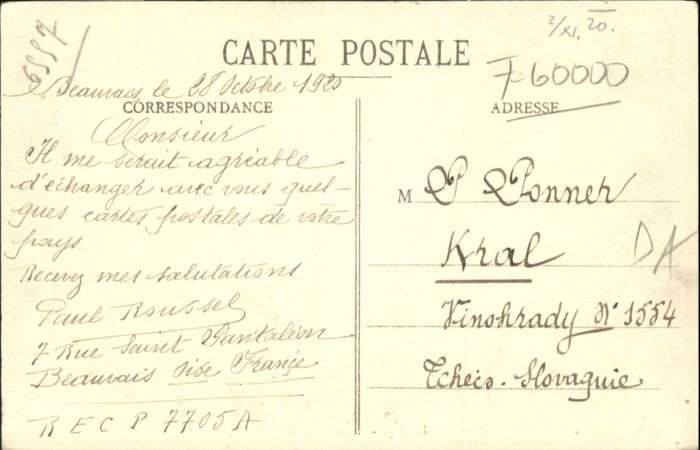 6557
2/XI. 20.
CARTE POSTALE
760000
Beauvais le 28 Octobre 1920
CORRESPONDANCE
Monsieur
Il me serait agréable
d'échanger avec vous quel-
ques cartes postales de votre
pays.
Recevez mes salutations
Paul Roussel
7 Rue Saint Pantaléon
Beauvais Oise France
R E C P 7705A
ADRESSE
M P Ponner
Kral
DA
Vinohrady N° 1554
Tchéco-Slovaquie